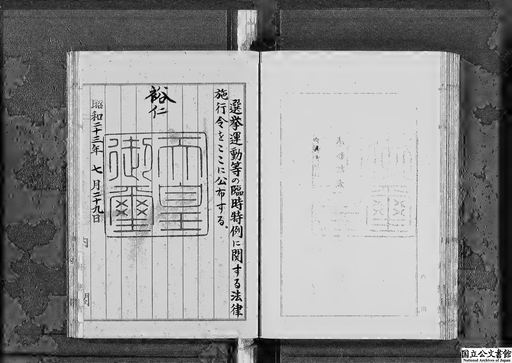 選挙運動等の臨時特例に関する法律
施行令をここに公布する。
裕仁
天皇
御璽
昭和二十三年 七月二十九日
内閣
国立公文書館
National Archives of Japan